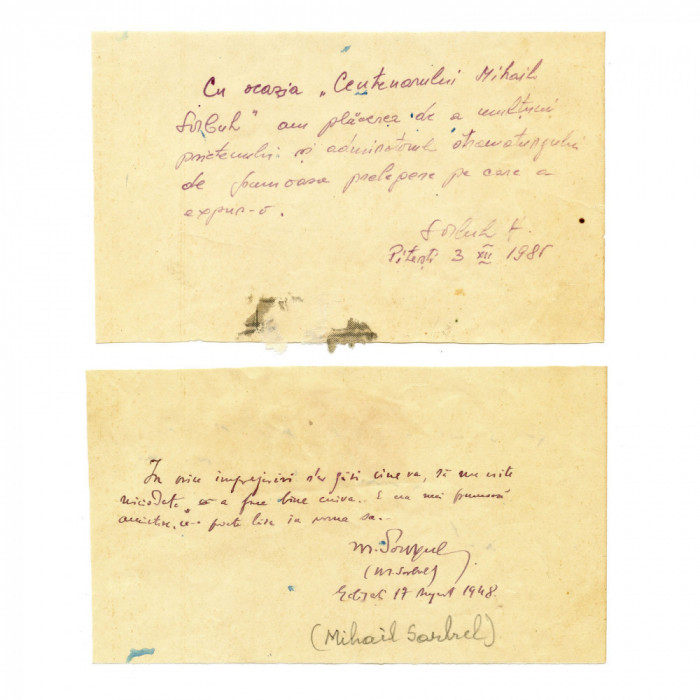 Cu ocazia „Centenarului Mihail
Sorbul" am plăcerea de a mulțumi
prietenului și admiratorul dramaturgului
de frumoasa prelegere pe care a
expus-o.
Sorbul H.
Pitești 3 XII 1985
In orice imprejurări s'ar găsi cineva, să nu uite
niciodată că a face bine cuiva e cea mai frumoasă
amintire, ce-o poate lăsa in urma sa.
M. Sorbul
(M. Sorbul)
17 August 1948.
(Mihail Sorbul)